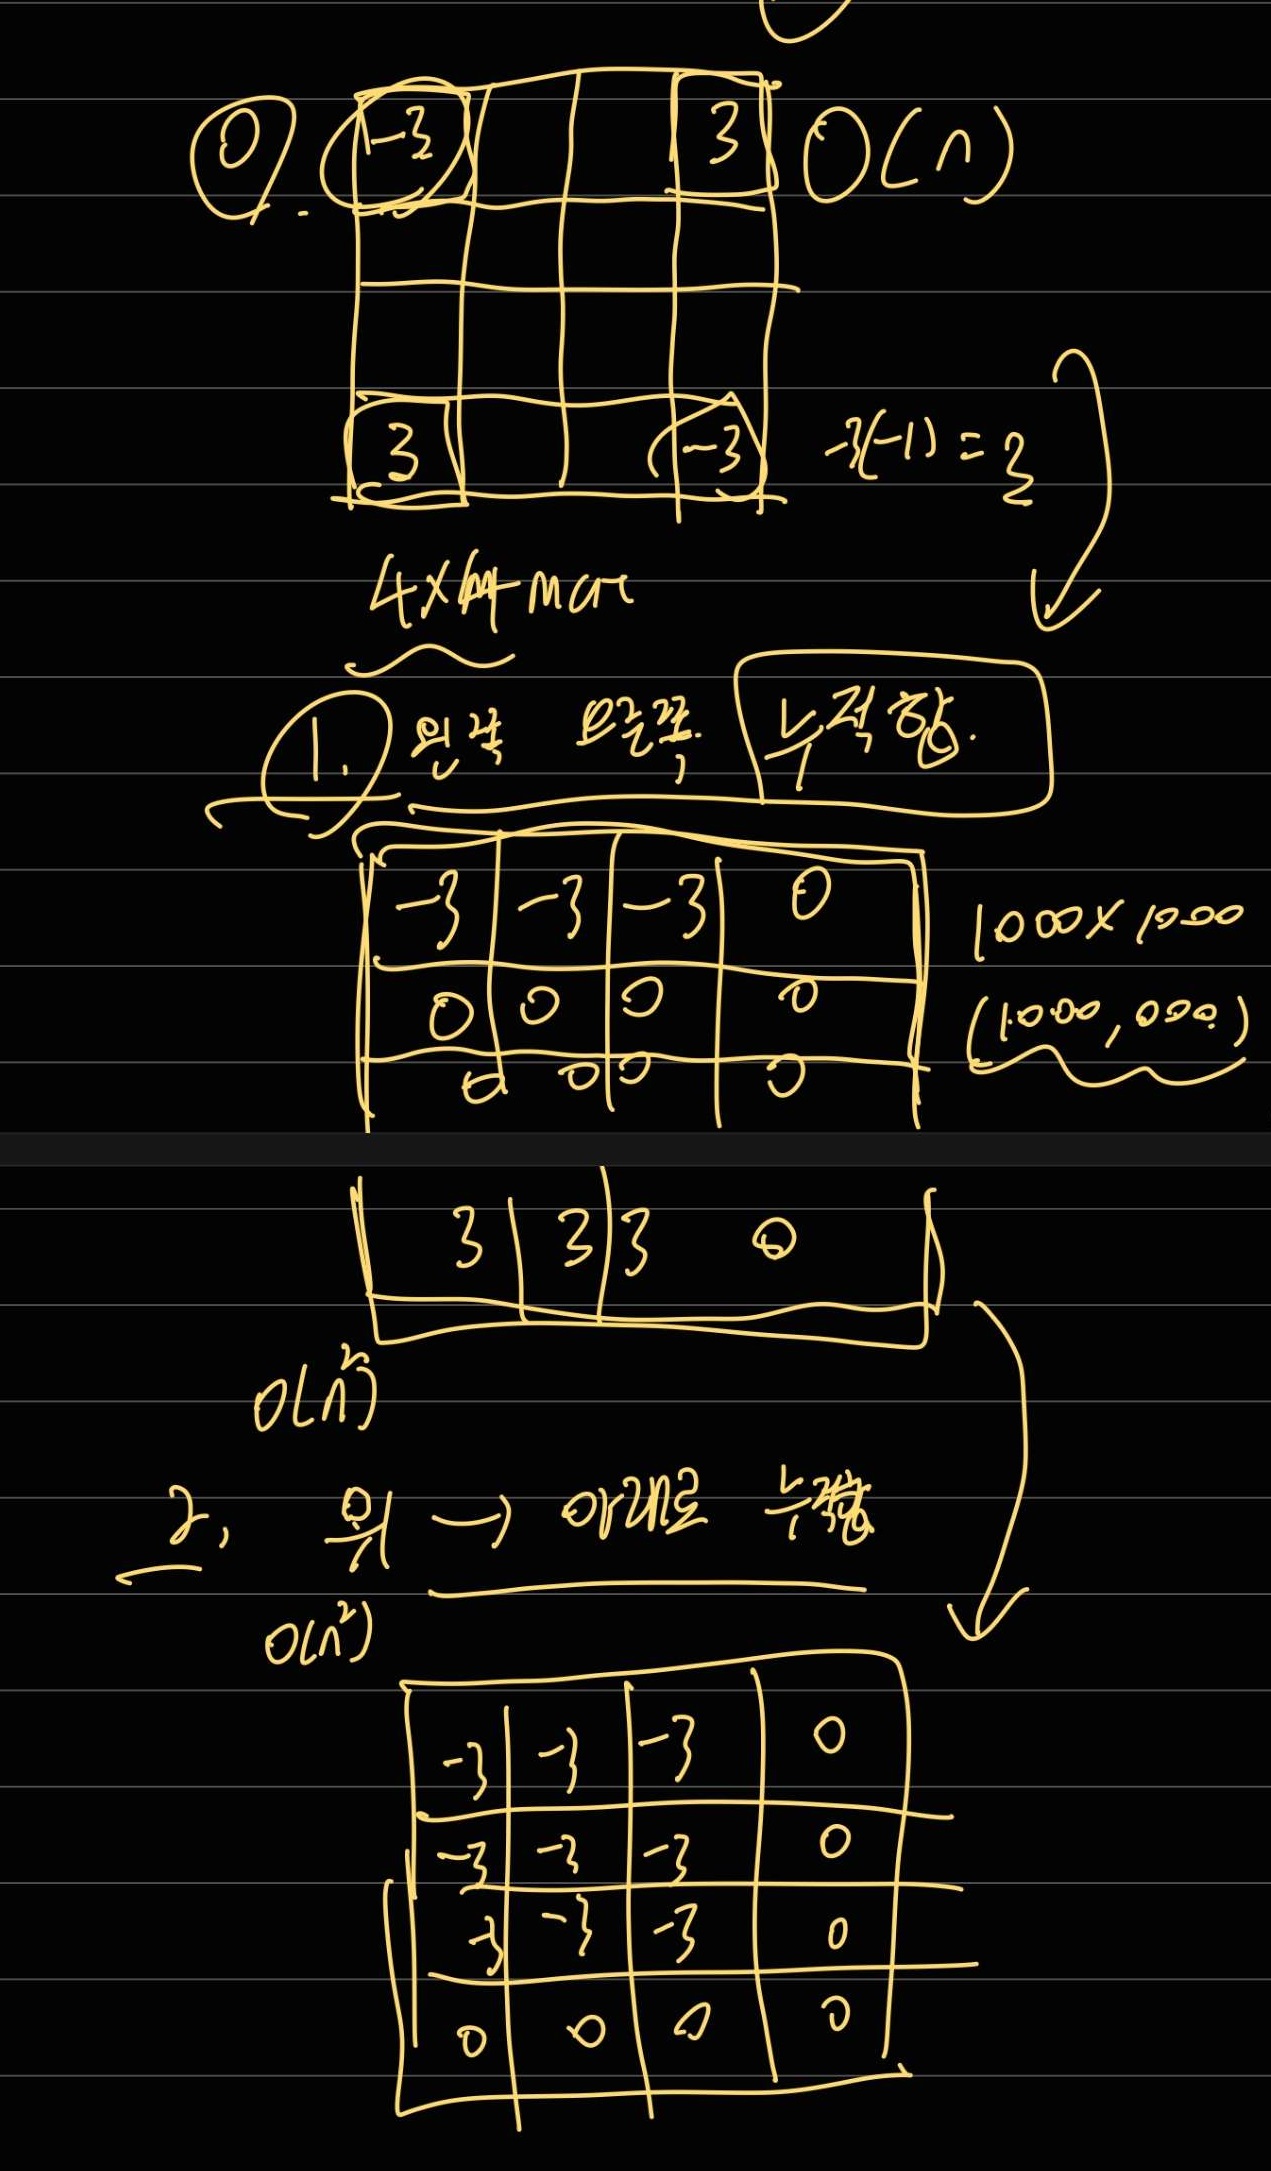 0. -3 3 O(n)
3 -3 -3(-1) = 3
4×4
1. 왼쪽 오른쪽 누적합.
-3 -3 -3 0
1000×1000
0 0 0 0
(1,000,000)
0 0 0 0
3 3 3 0
O(n²)
2. 위 → 아래로 누적합
O(n²)
-3 -3 -3 0
-3 -3 -3 0
-3 -3 -3 0
0 0 0 0